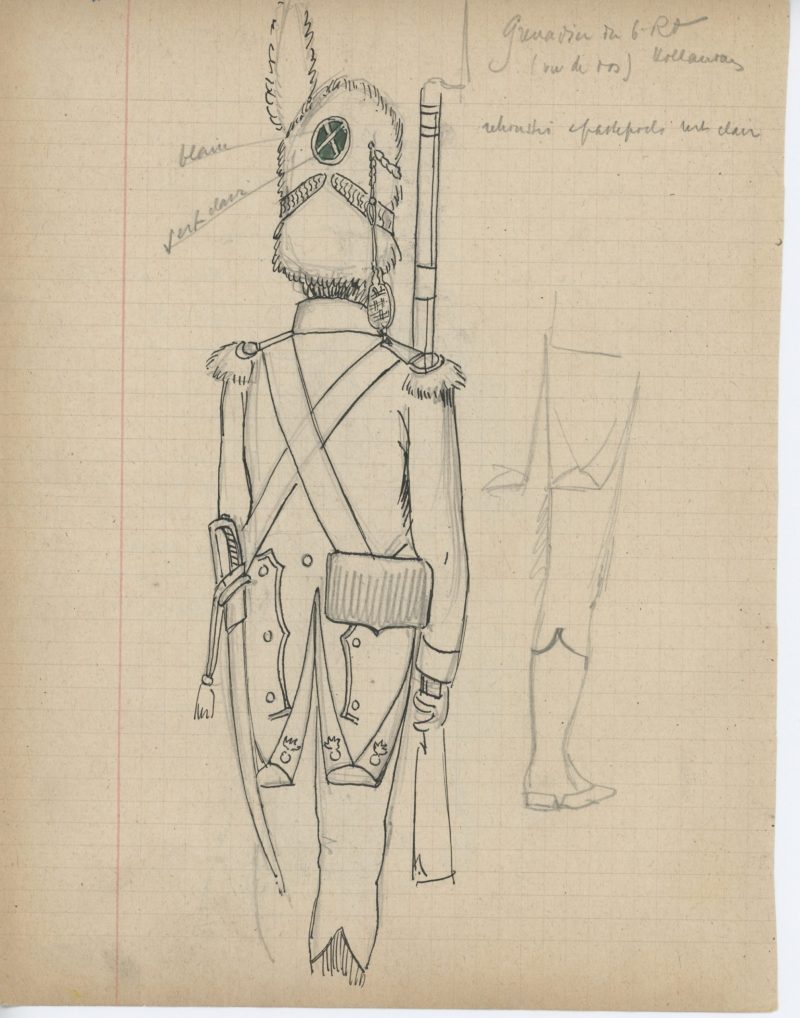 Grenadier du 6e Rt
(vu de dos) Hollandais
vert clair
blanc
vert clair